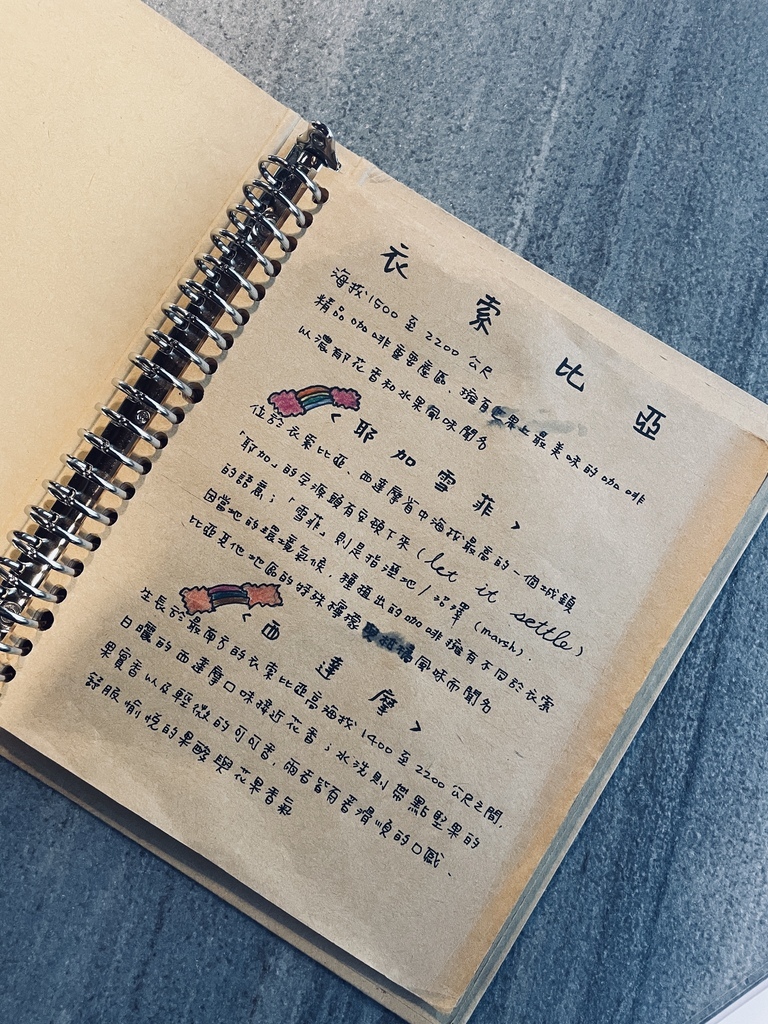 衣索比亞
海拔1500至2200公尺
精品咖啡重要產區、擁有世界上最美味的咖啡
以濃郁花香和水果風味聞名
<耶加雪菲>
位於衣索比亞、西達摩省中海拔最高的一個城鎮
「耶加」的字源頭有安頓下來(let it settle)
的語意;「雪菲」則是指溼地/沼澤(marsh).
因當地的環境氣候,種植出的咖啡擁有不同於衣索
比亞其他地區的特殊檸檬與柑橘風味而聞名
<西達摩>
生長於最南方的衣索比亞高海拔1400至2200公尺之間,
日曬的西達摩口味接近花香;水洗則帶點堅果的
果實香以及輕微的可可香,兩者皆有著滑順的口感、
舒服愉悅的果酸與花果香氣